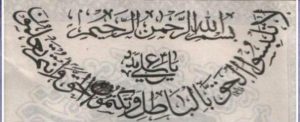 بسم الله الرحمن الرحيم
يا علي مدد
لا تلبسوا الحق بالباطل وتكتموا الحق وانتم تعلمون